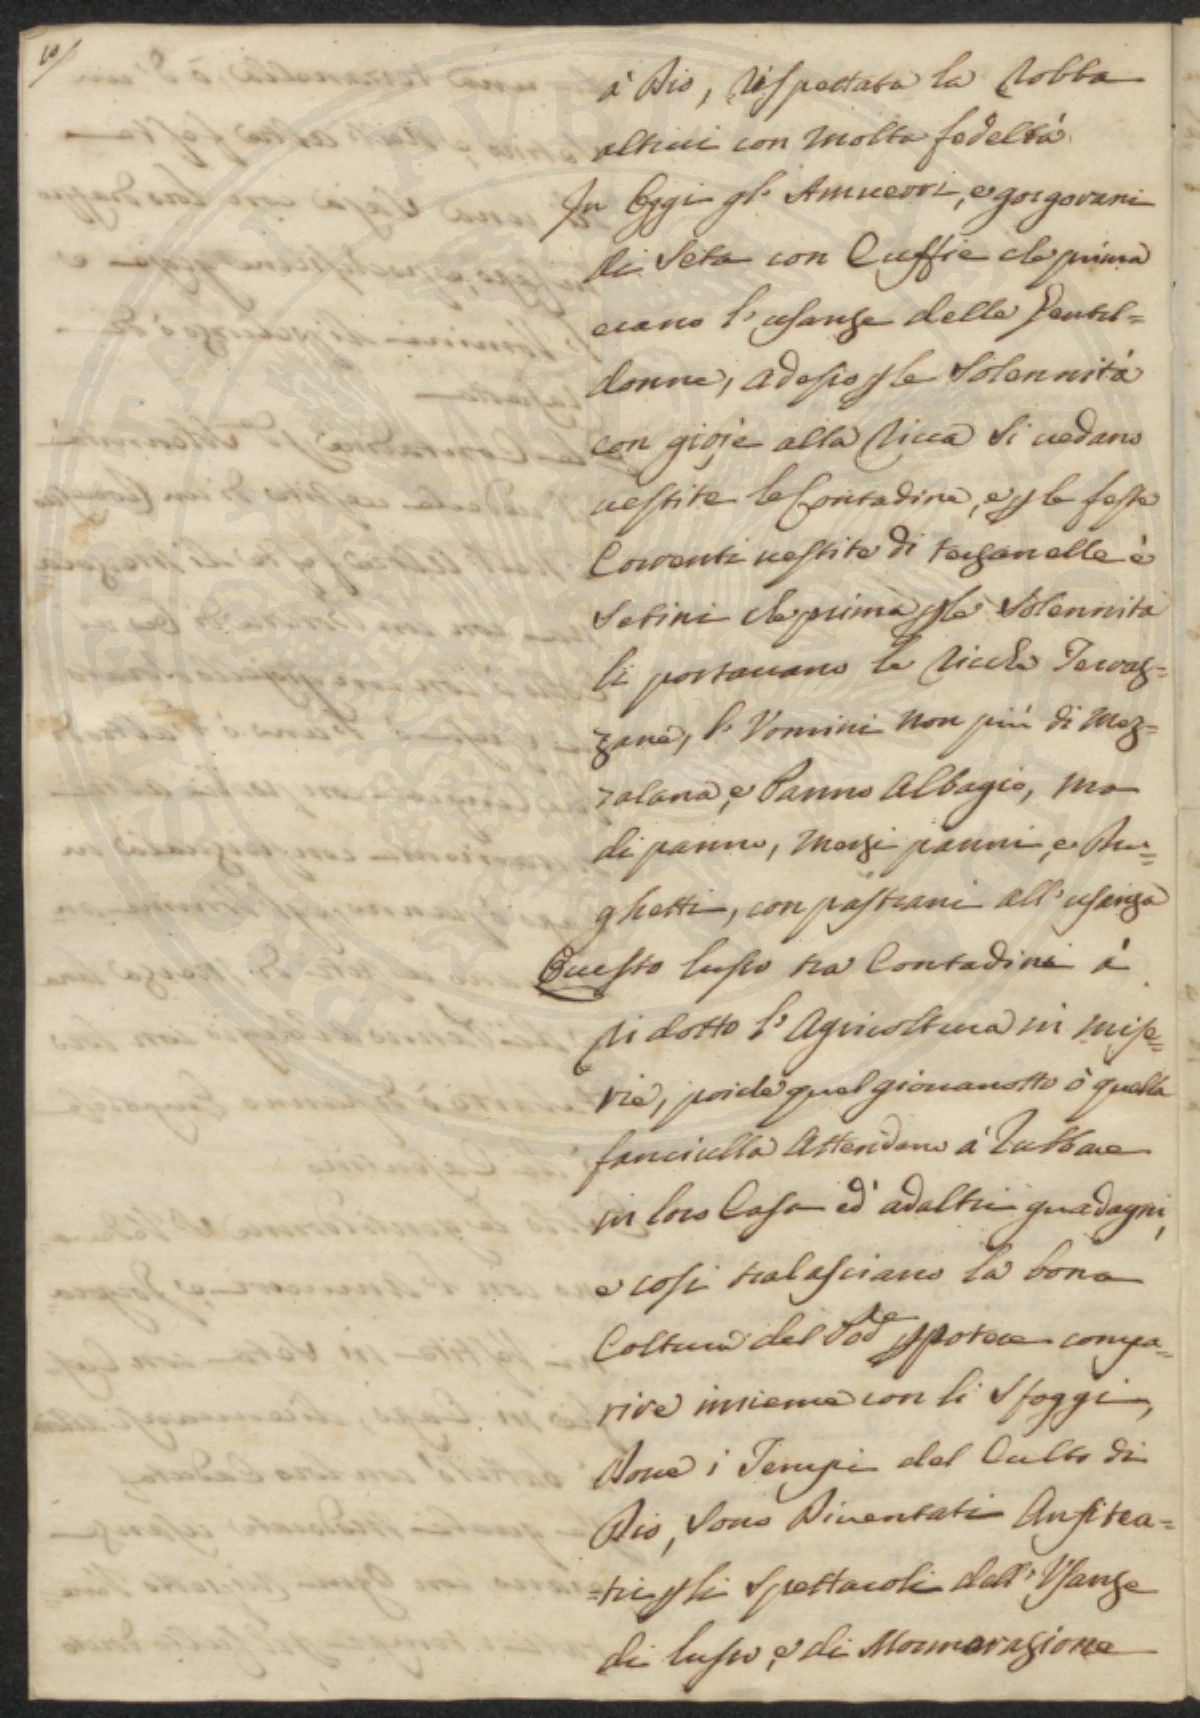 10/
à Dio, rispettata la Robba
altrui con molta fedeltà
In Oggi gl' Amuerri, e gorgorani
di seta con Cuffie che prima
erano l'usanze delle Gentil=
donne, adesso p le Solennità
con gioje alla Ricca si vedano
vestite le Contadine, e p le feste
Correnti vestite di terzanelle è
Setini che prima p le Solennita
li portavano le Ricche Terraz=
zane, l'Vomini non più di Mez=
zalana, e Panno Albagio, ma
di panno, mezzi panni, e Ru=
ghetti, con pastrani all'usanza
Questo lusso tra Contadini à
Ridotto l'Agricoltura in mise=
rie, poiche quel giovanotto ò quella
fanciulla Attendano à Rubbare
in loro Casa ed' ad altri guadagni,
e cosi tralasciano la bona
Coltura del Pod.re p potere compa=
rire insieme con li Sfoggi,
dove i Tempi del Culto di
Dio, Sono Diventati Anfitea=
=tri p li Spettacoli dell'Vsanze
di lusso, e di Mormorazione